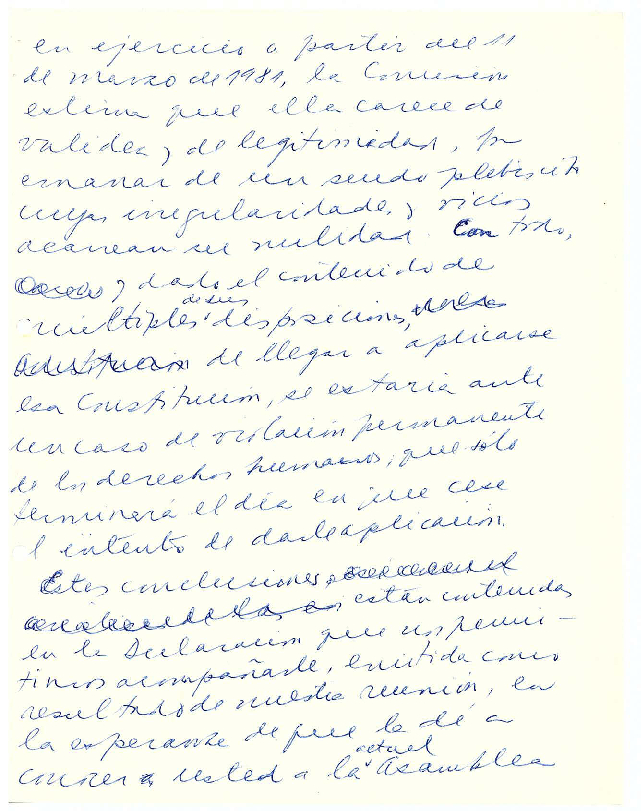 en ejercicio a partir del 11
de marzo de 1981, la Comisión
estima que ella carece de
validez y de legitimidad, por
emanar de un seudo plebiscito
cuyas irregularidades y vicios
acarrean su nulidad. Con todo,
y dado el contenido de
múltiples de sus disposiciones,
de llegar a aplicarse
esa Constitución, se estaría ante
un caso de violación permanente
de los derechos humanos, que sólo
terminará el día en que cese
el intento de darle aplicación.
Estas conclusiones,
están contenidas
en la Declaración que nos permi-
timos acompañarle, emitida como
resultado de nuestra reunión, en
la esperanza de que la dé a
conocer usted a la actual Asamblea